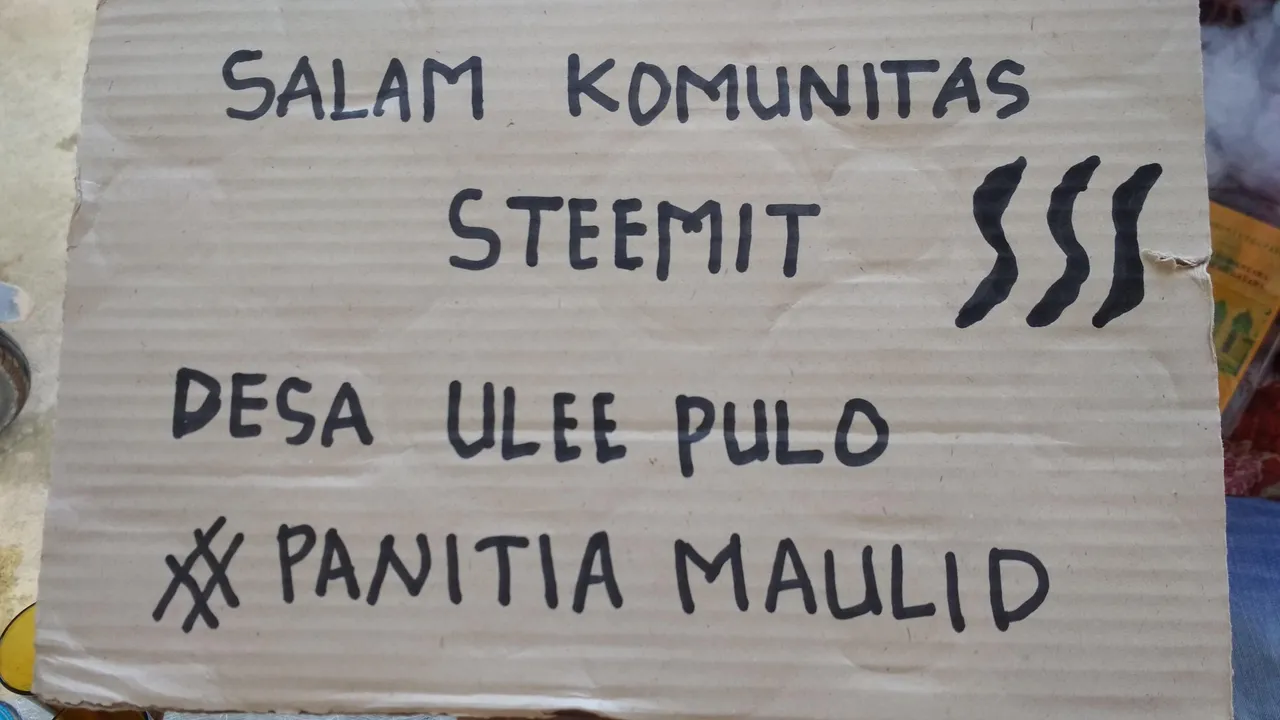 SALAM KOMUNITAS
STEEMIT
DESA ULEE PULO
# PANITIA MAULID